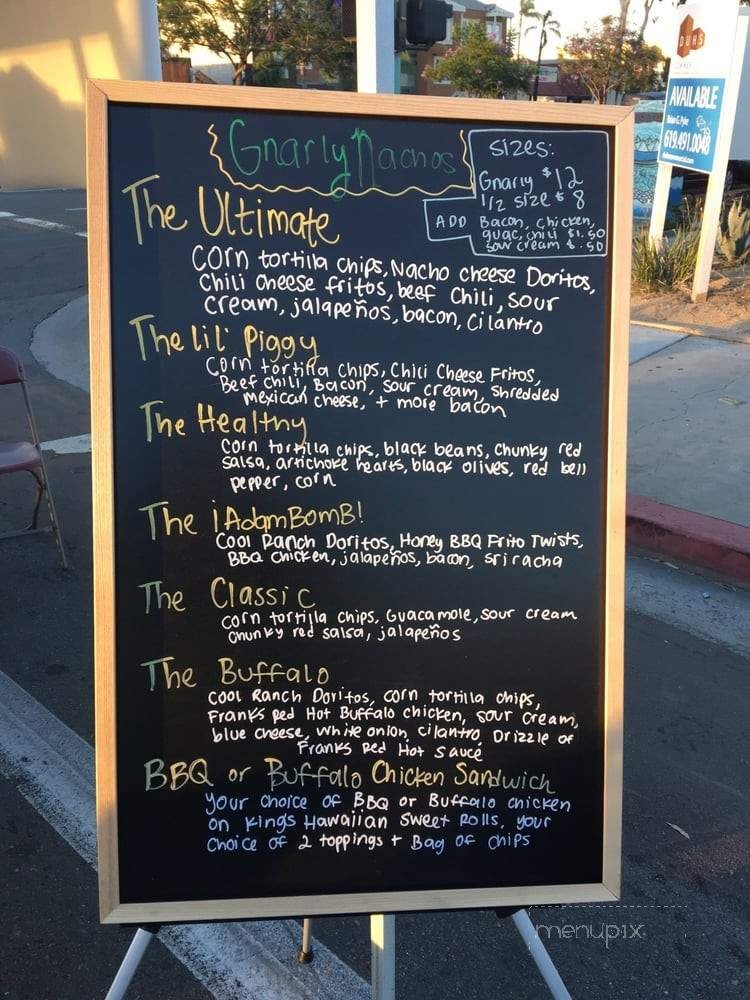 Gnarly Nachos
Sizes:
Gnarly $12
1/2 size $8
ADD Bacon, chicken,
guac, chili $1.50
sour cream $.50
The Ultimate
corn tortilla chips, Nacho cheese Doritos,
chili cheese fritos, beef chili, sour
cream, jalapeños, bacon, cilantro
The lil' Piggy
Corn tortilla chips, Chili Cheese Fritos,
Beef chili, Bacon, sour cream, shredded
mexican cheese, + more bacon
The Healthy
corn tortilla chips, black beans, chunky red
salsa, artichoke hearts, black olives, red bell
pepper, corn
The ¡AdamBomB!
Cool Ranch Doritos, Honey BBQ Frito Twists,
BBQ chicken, jalapeños, bacon, sriracha
The Classic
corn tortilla chips, Guacamole, sour cream
chunky red salsa, jalapeños
The Buffalo
cool Ranch Doritos, corn tortilla chips,
Franks Red Hot Buffalo chicken, sour cream,
blue cheese, white onion, cilantro, Drizzle of
Franks Red Hot sauce
BBQ or Buffalo Chicken Sandwich
your choice of BBQ or Buffalo chicken
on Kings Hawaiian sweet Rolls, your
choice of 2 toppings + Bag of chips
DUHS
AVAILABLE
619.491.0048
menupix